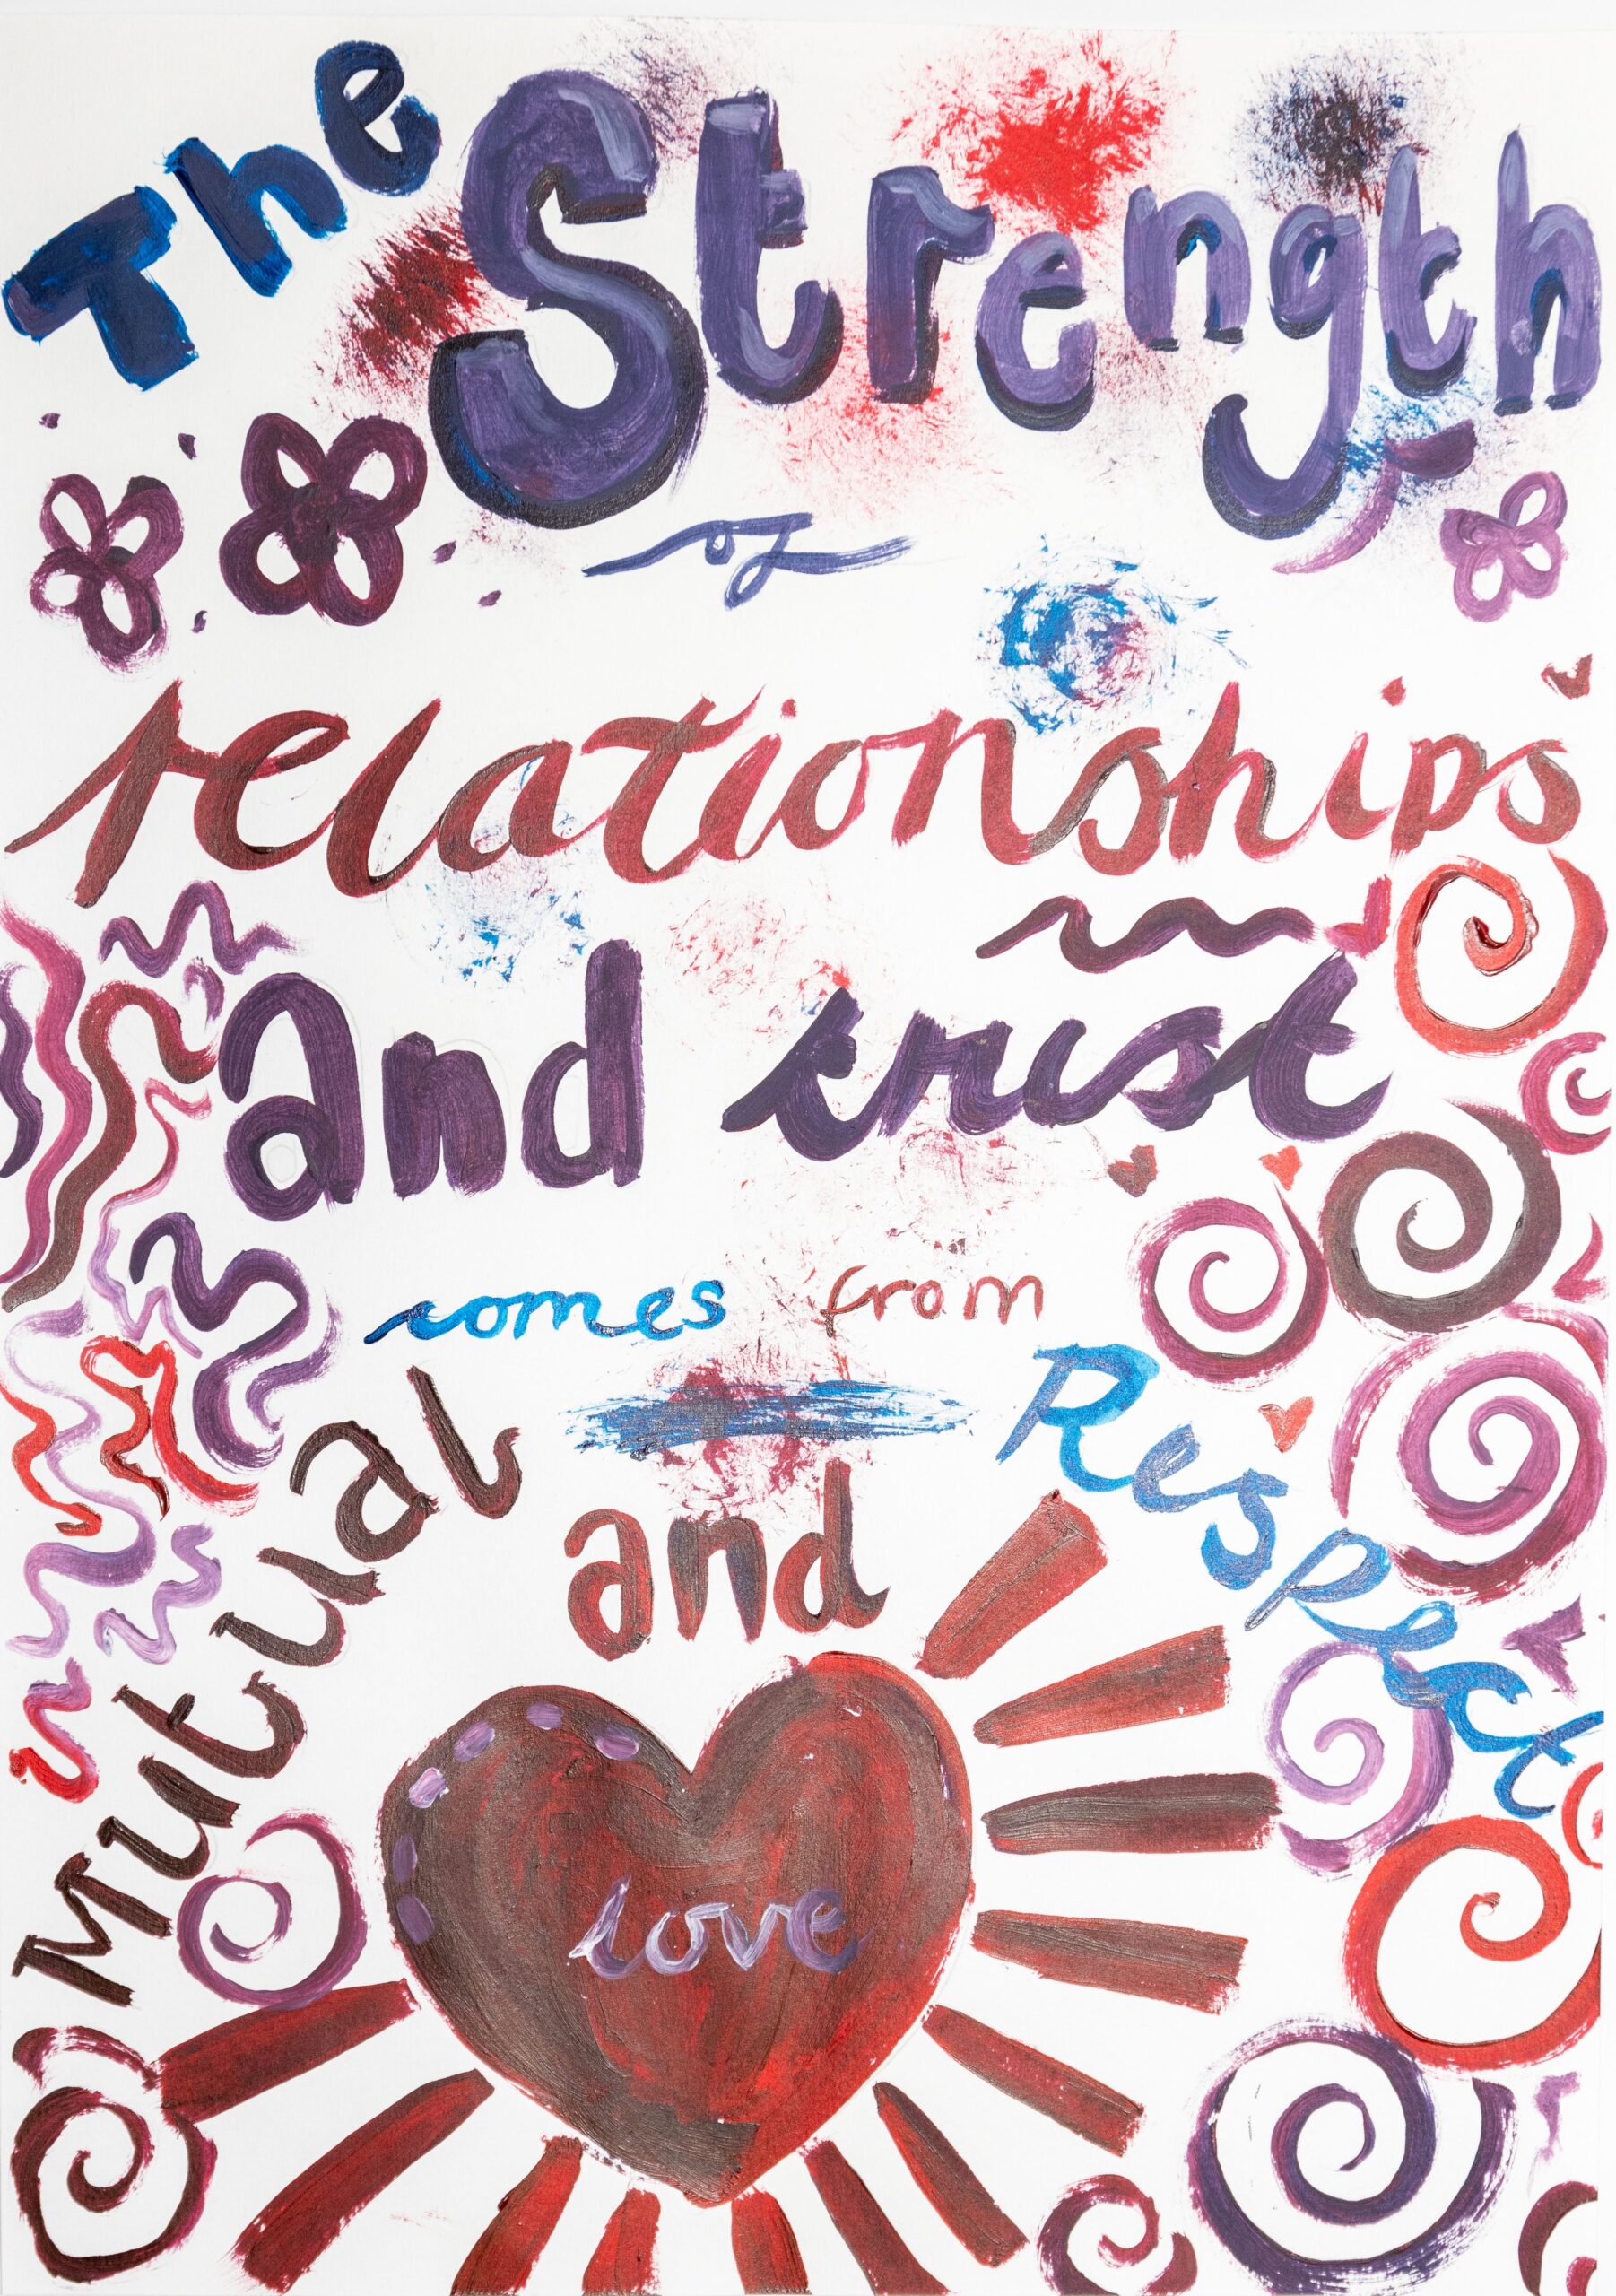 The Strength
of
relationships
and trust
comes from
Mutual Respect
and
love